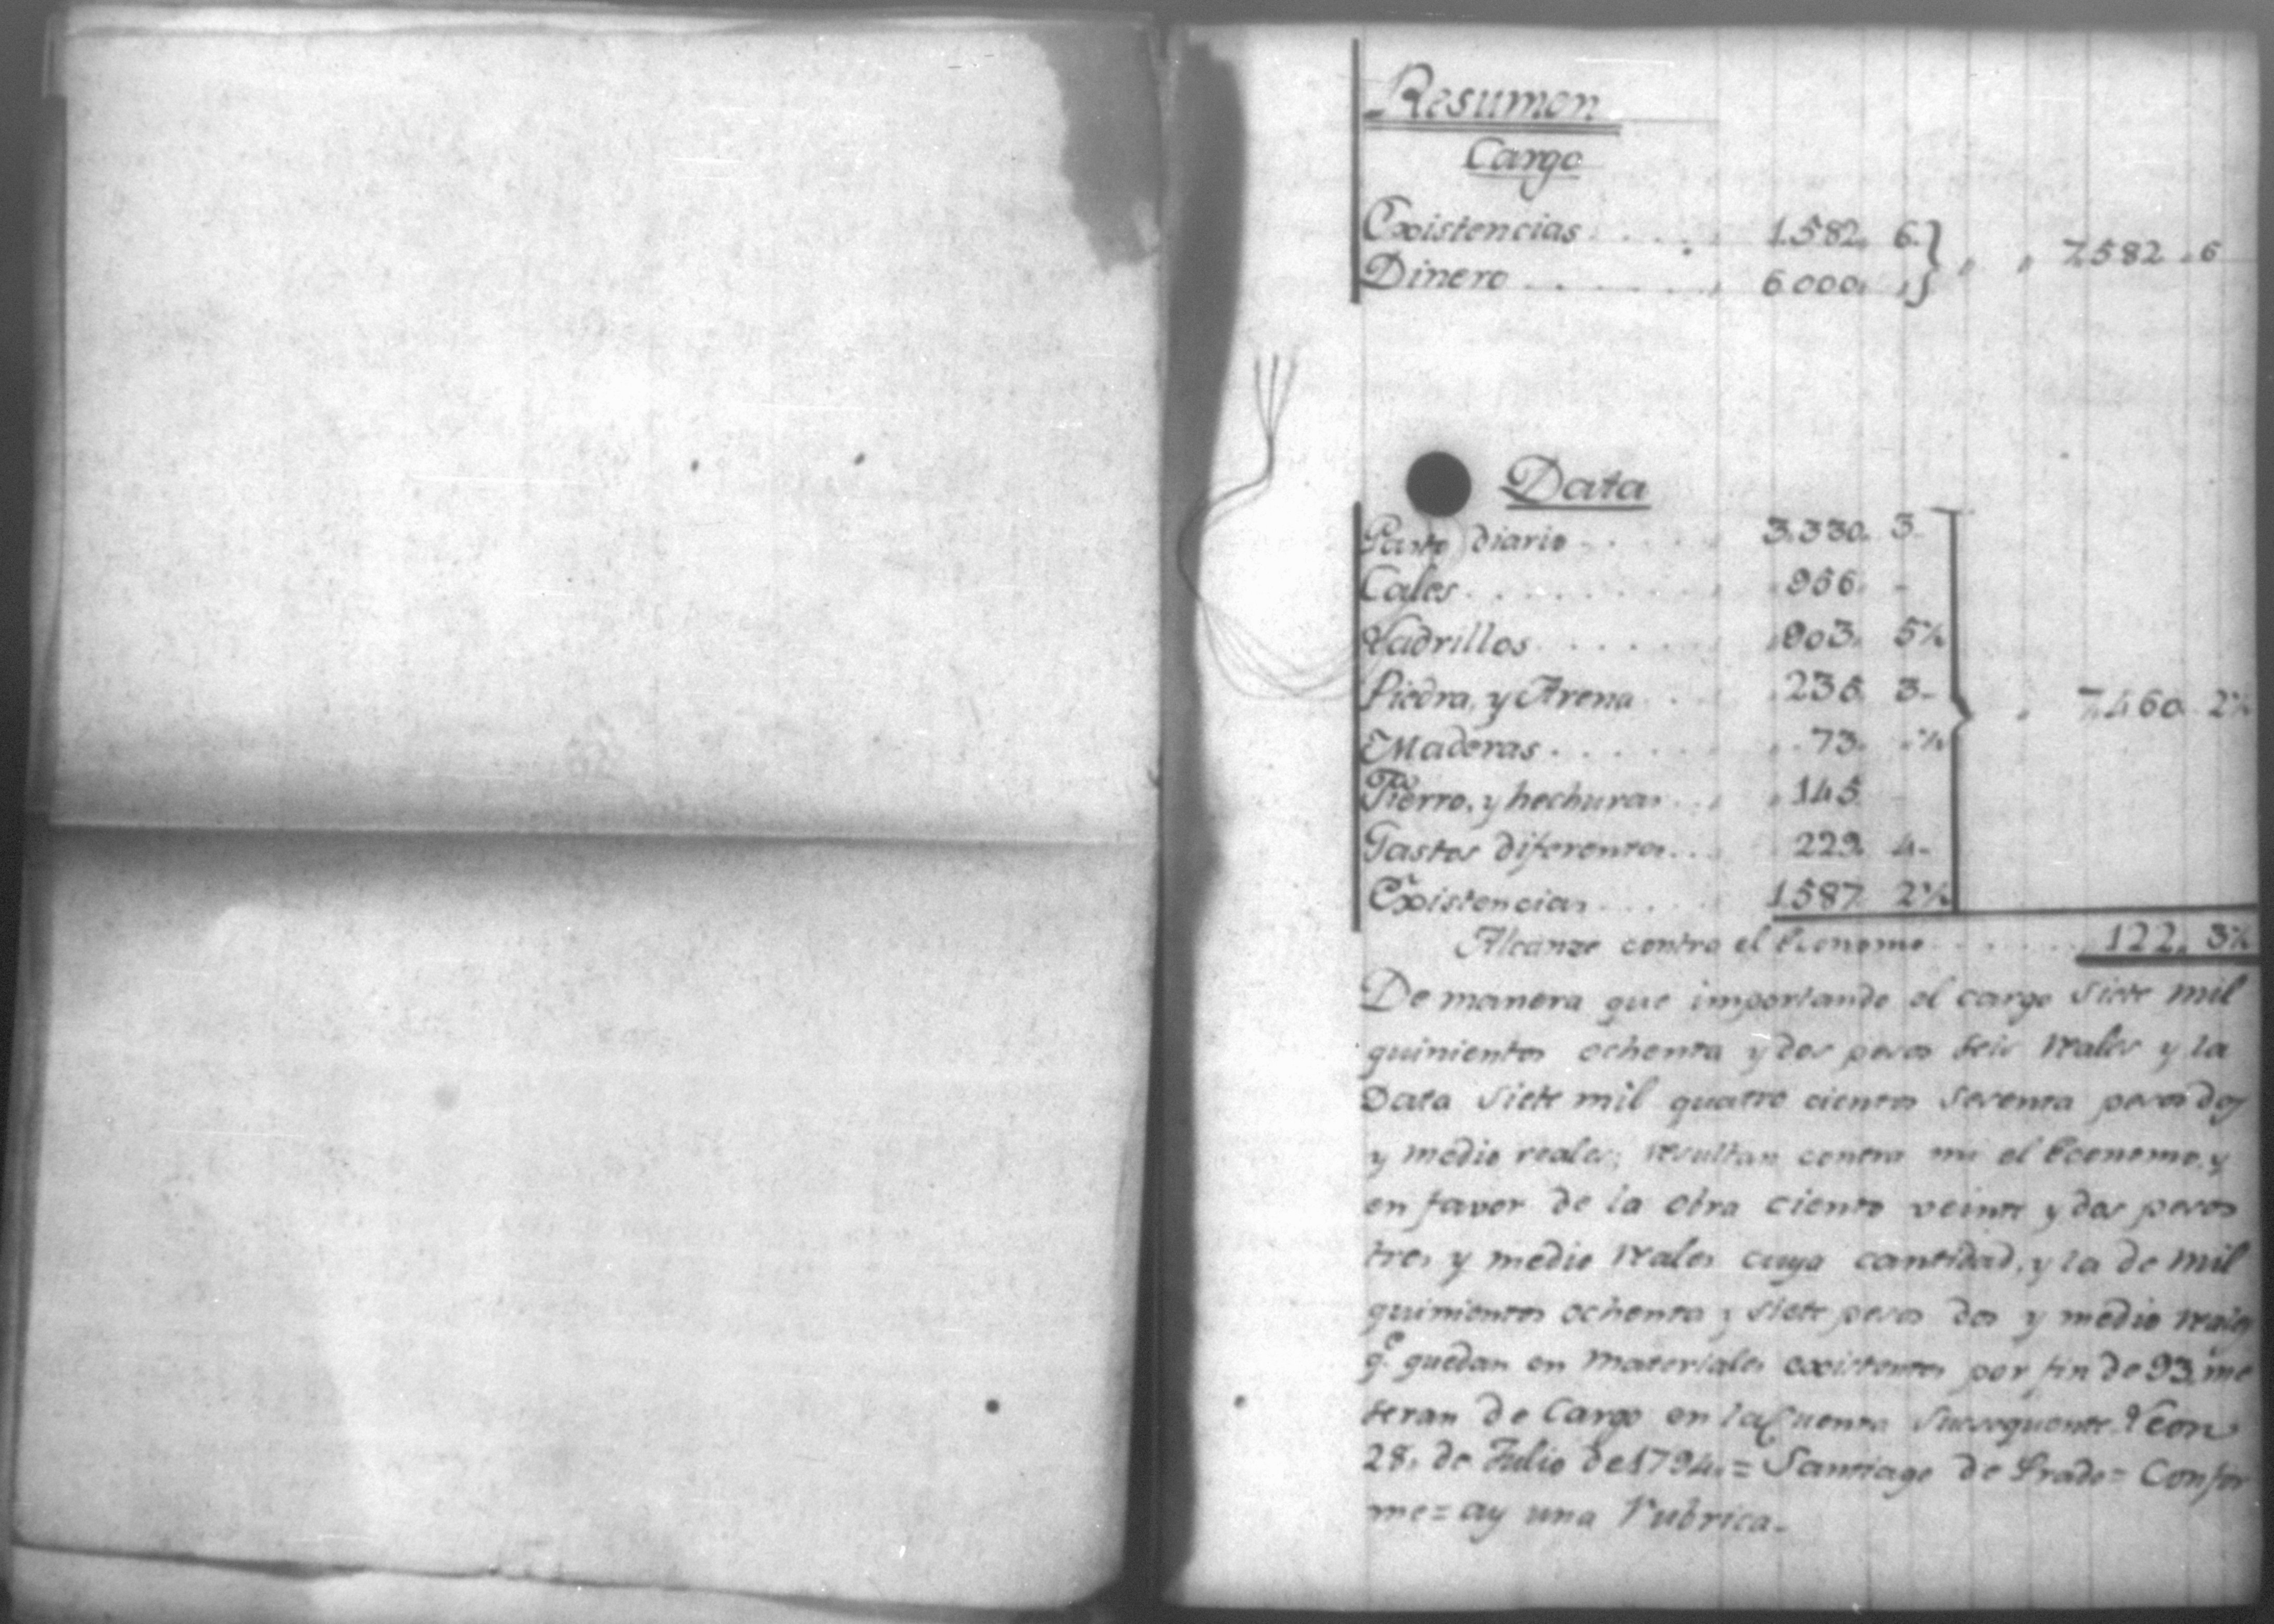 Resumen
Cargo
Existencias . . . . . 1.582, 6 } " " 7.582 " 6
Dinero . . . . . . . 6.000, "
Data
Gasto diario . . . . 3.330. 3-
Cales . . . . . . . . . 956. -
Ladrillos . . . . . . . 903. 5½
Piedra, y Arena . . 235. 3-
Maderas . . . . . . " 73. " ½
Fierro, y hechuras . . . " 145
Gastos diferentes . . . 229. 4-
Existencias . . . . . 1587 2½ } " 7.460 2½
Alcanze contra el Economo . . . . . . 122. 3½
De manera que importando el cargo Siete mil
quinientos ochenta y dos pesos seis reales y la
Data Siete mil quatro cientos sesenta pesos dos
y medio reales; resultan contra mi el Economo, y
en favor de la obra ciento veinte y dos pesos
tres y medio reales cuya cantidad, y la de mil
quinientos ochenta y siete pesos dos y medio reales
qe. quedan en materiales existentes por fin de 93, me
seran de Cargo en la Cuenta Subsequente. Leon
28, de Julio de 1794. = Santiago de Prado = Confor
me = ay una Rubrica.